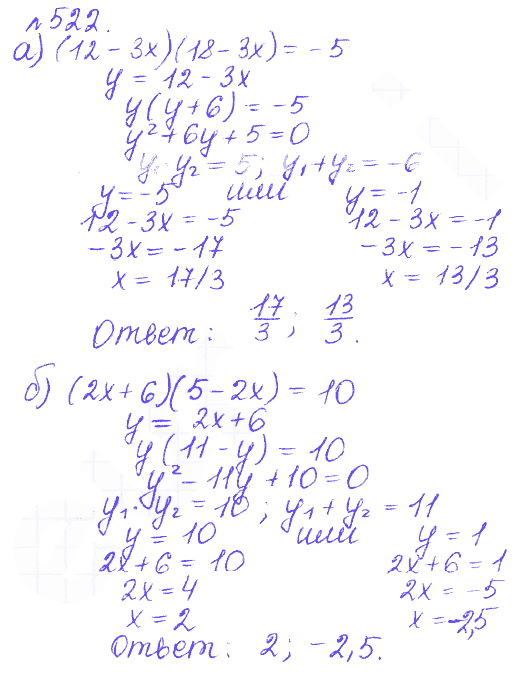 №522.
а) (12 - 3x)(18 - 3x) = -5
y = 12 - 3x
y(y + 6) = -5
y² + 6y + 5 = 0
y₁·y₂ = 5; y₁ + y₂ = -6
y = -5 или y = -1
12 - 3x = -5 12 - 3x = -1
-3x = -17 -3x = -13
x = 17/3 x = 13/3
Ответ: 17/3; 13/3.
б) (2x + 6)(5 - 2x) = 10
y = 2x + 6
y(11 - y) = 10
y² - 11y + 10 = 0
y₁·y₂ = 10; y₁ + y₂ = 11
y = 10 или y = 1
2x + 6 = 10 2x + 6 = 1
2x = 4 2x = -5
x = 2 x = -2,5
Ответ: 2; -2,5.